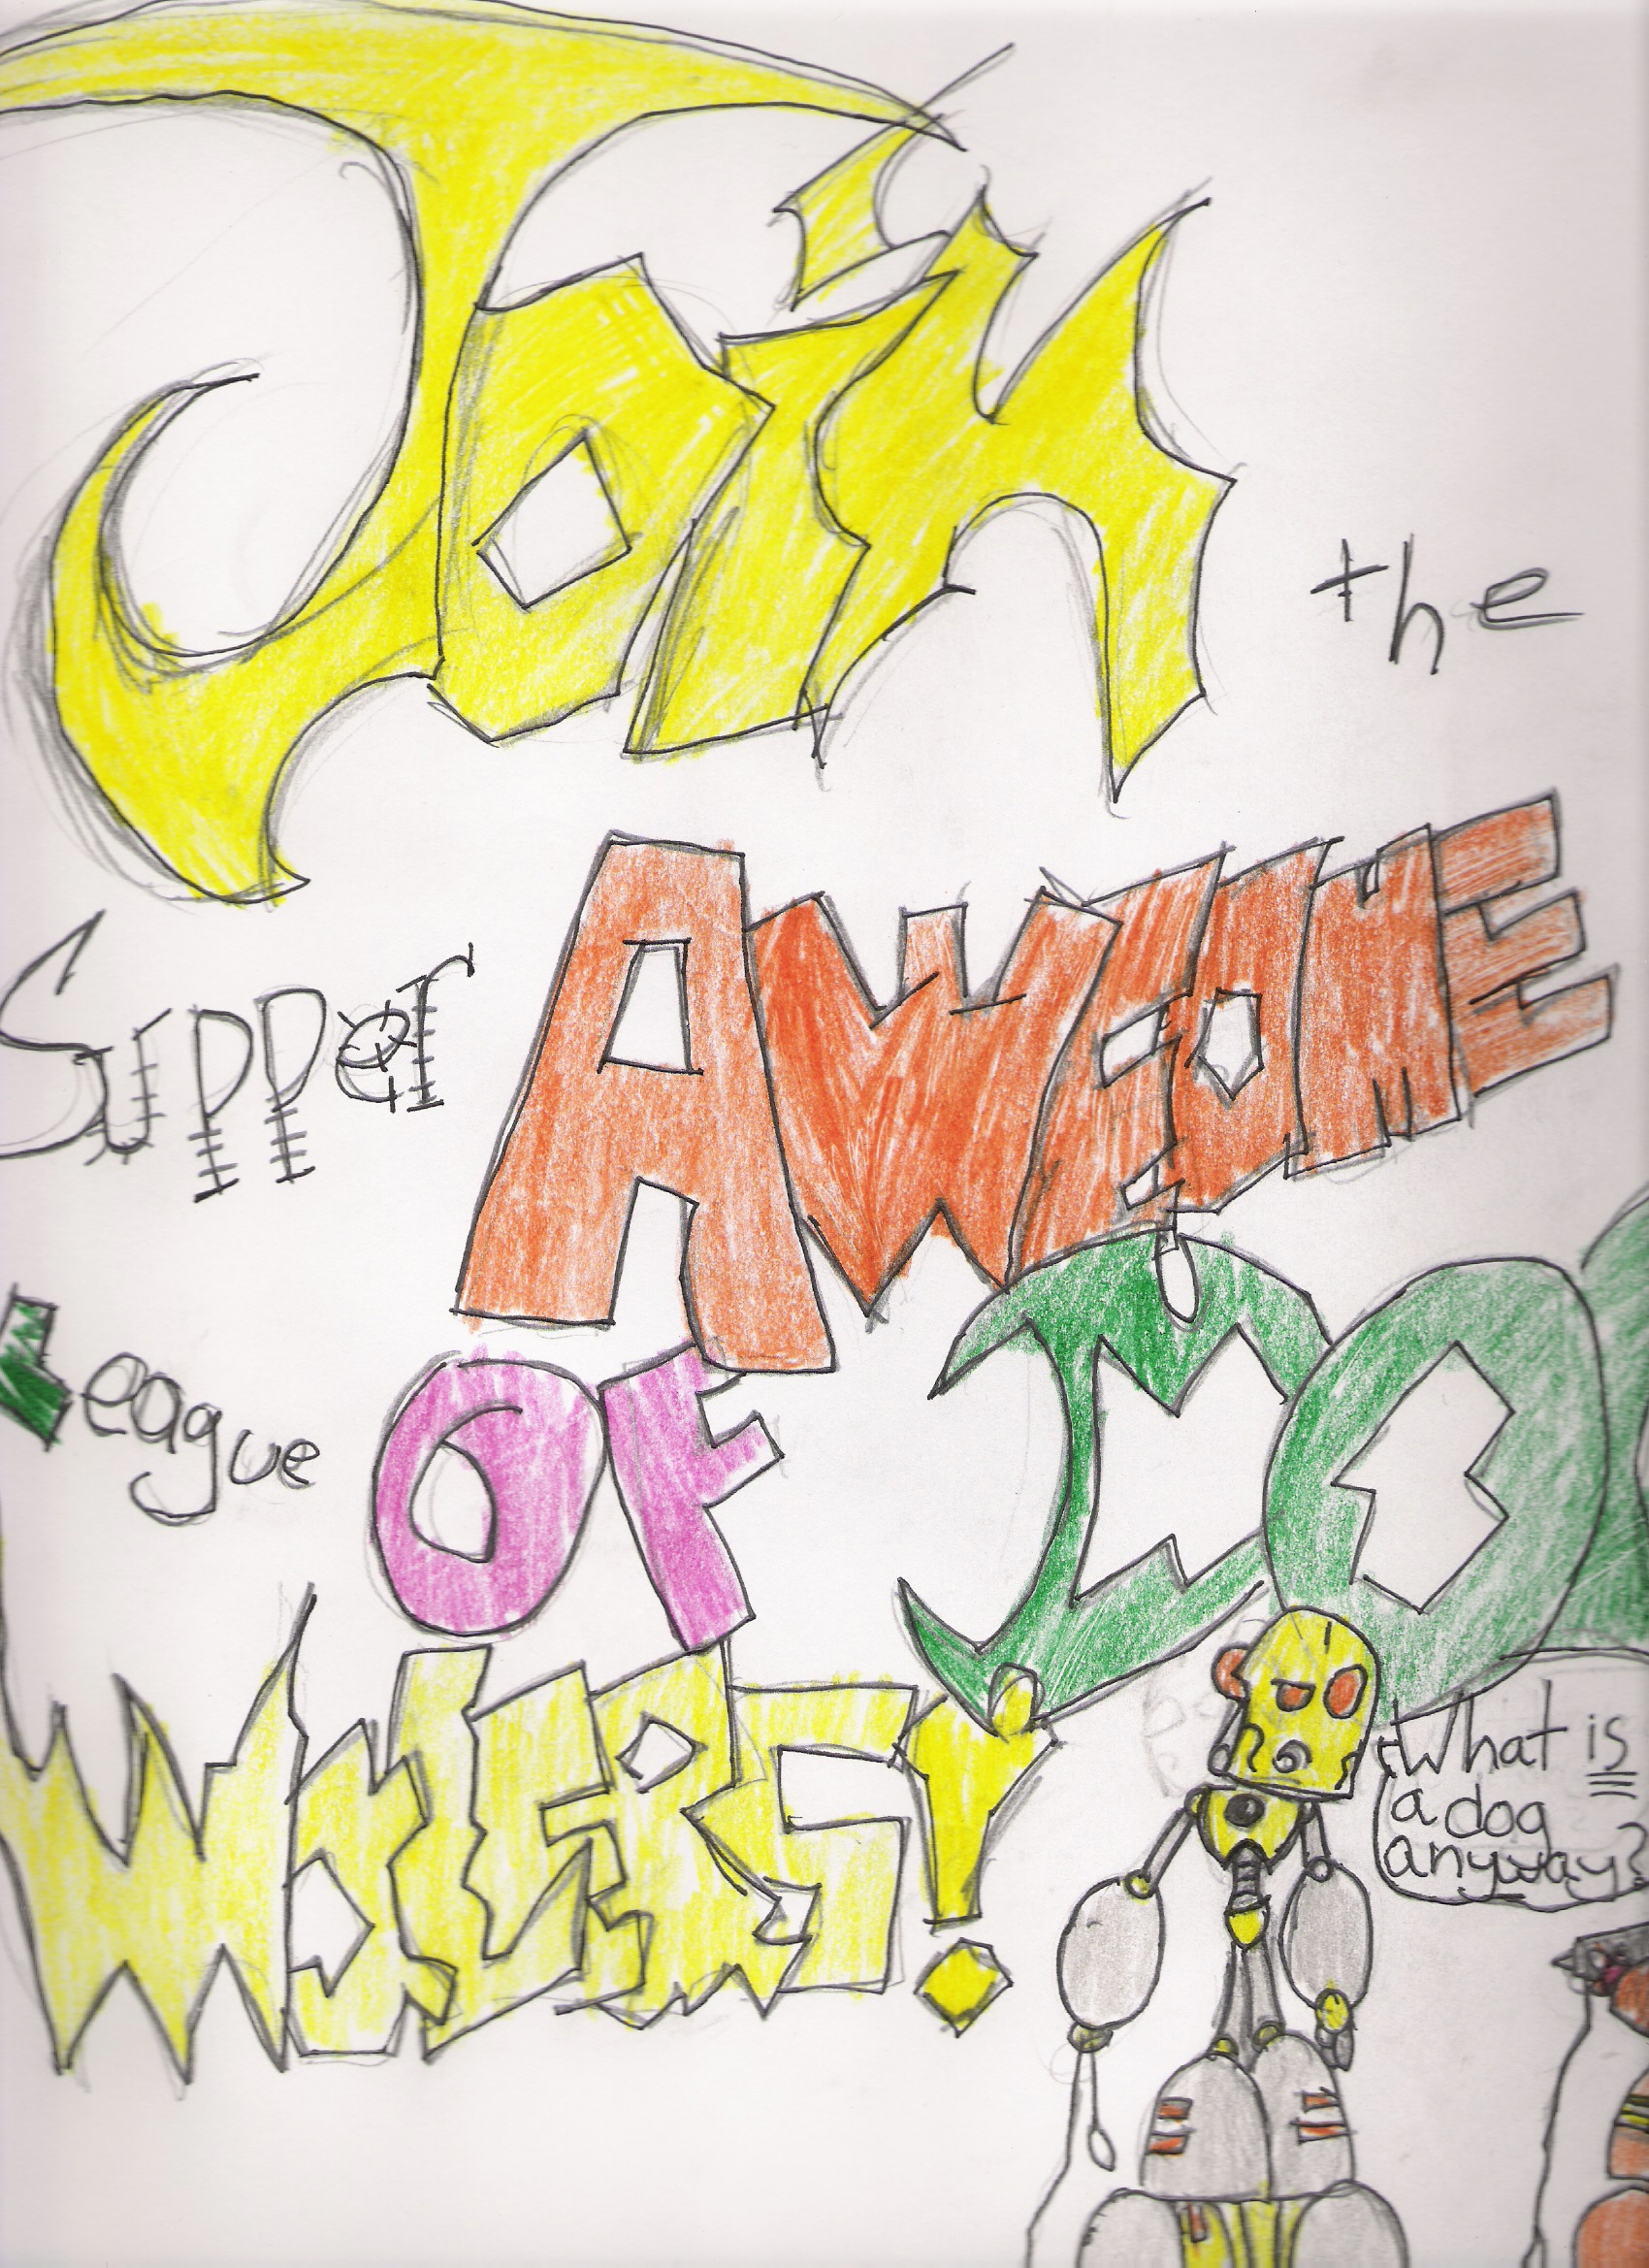 Join the
Supper AWEOME
League OF DO
WALERS!
What is
a dog
anyway?